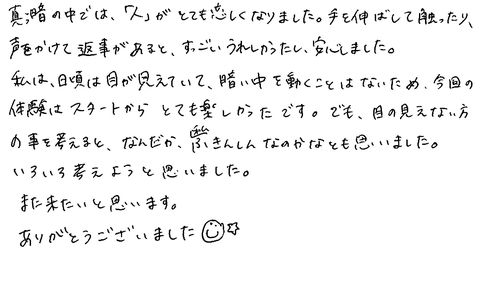 真っ暗の中では、「人」がとても恋しくなりました。手を伸ばして触ったり、
声をかけて返事があると、すっごいうれしかったし、安心しました。
私は、日頃は目が見えていて、暗い中を動くことはないため、今回の
体験はスタートからとても楽しかったです。でも、目の見えない方
の事を考えると、なんだか、ふきんしんなのかなとも思いました。
いろいろ考えようと思いました。
また来たいと思います。
ありがとうございました